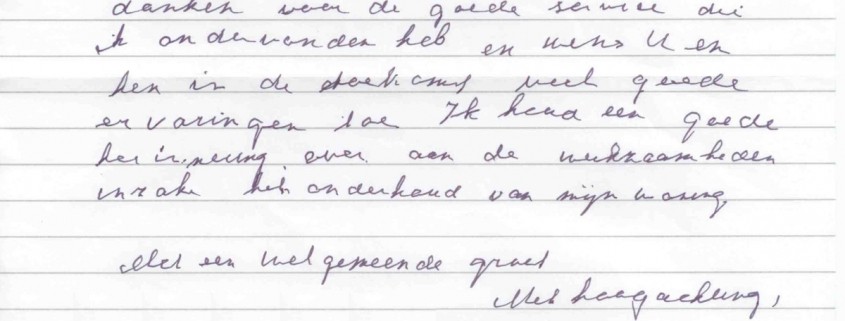 danken voor de goede service die
ik ondervonden heb en wens U en
hen in de toekomst veel goede
ervaringen toe Ik houd een goede
herinnering over aan de werkzaamheden
inzake het onderhoud van mijn woning,
Met een welgemeende groet
Met hoogachting,